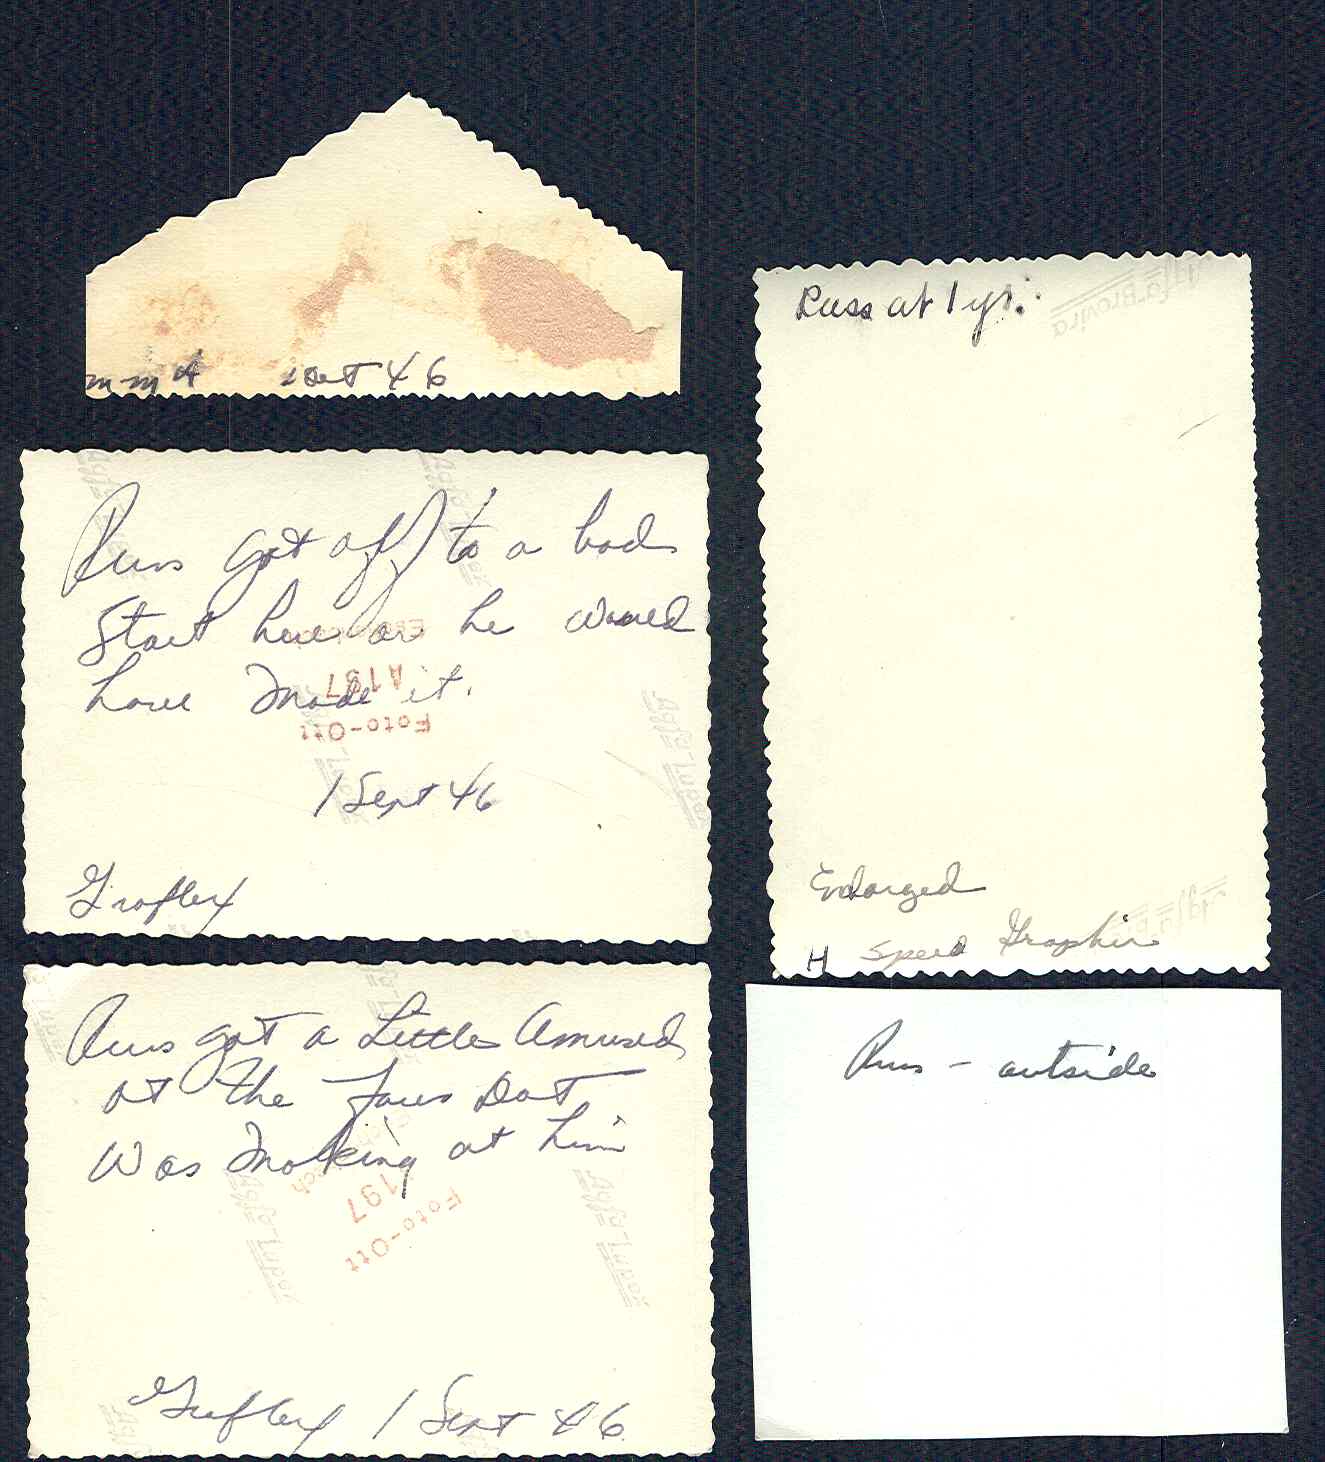 m m A 1 Oct 46
Russ got off to a bad
Start here or he would
have made it.
A197
Foto-Ott
1 Sept 46
Graflex
Russ got a Little Amused
at the faces Dot
Was Making at him
197
Foto-Ott
Graflex 1 Sept 46
Agfa-Lupex
Russ at 1 yr.
Agfa-Brovira
Enlarged
H Speed Graphic
Russ - outside